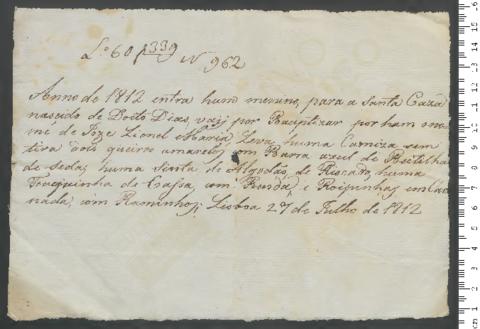 Lº 60 f 339 Nº 962
Anno de 1812 entra hum menino, para a Santa Caza
nascido de Dias, vaij por Baeptizar por ham o no
me de Joze Lionel Maria, Leva huma Camiza sem
tira dois queiros amarelos com Barra azul de
de seda, huma sinta de Algodaõ de Riscado, huma
Touquinha de Cassa, com Renda, e Roupinhas
nada, com Raminhos; Lisboa 27 de Julho de 1812